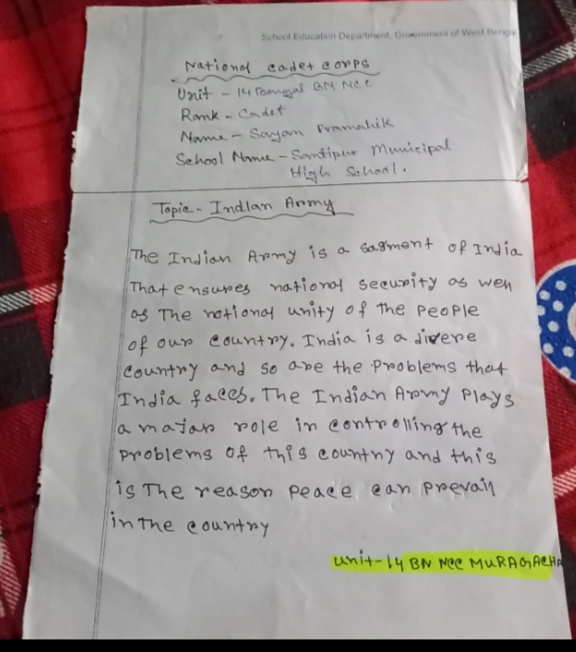 School Education Department, Government of West Bengal
National cadet corps
Unit - 14 Bengal BN NCC
Rank - Cadet
Name - Sayan Pramanik
School Name - Santipur Municipal
High School.
Topic - Indian Army
The Indian Army is a sagment of India
That ensures national security as well
as The notional unity of the people
of our country. India is a divere
country and so are the problems that
India faces. The Indian Army plays
a major role in controlling the
problems of this country and this
is The reason peace can prevail
in the country
unit-14 BN NCC MURAGACHA